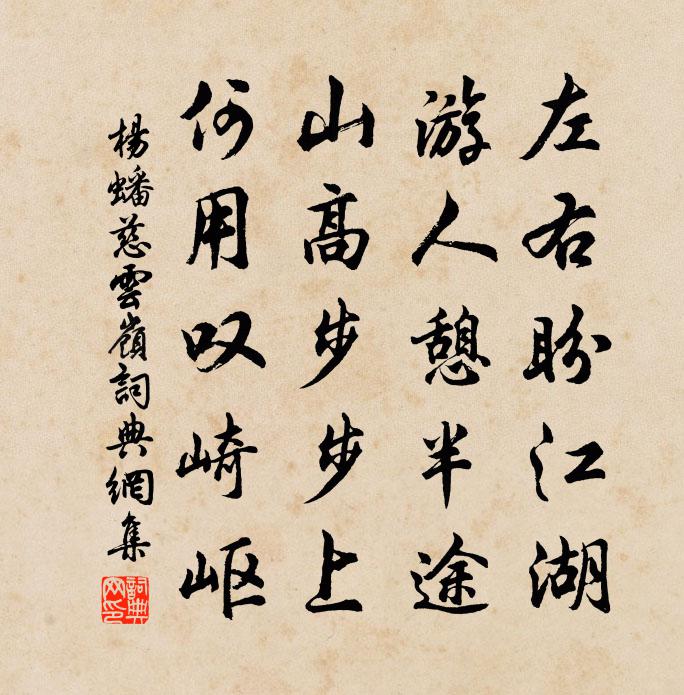 左右盼江湖
游人憩半途
山高步步上
何用叹崎岖
楊蟠慈雲嶺詞典網集
詞典網印